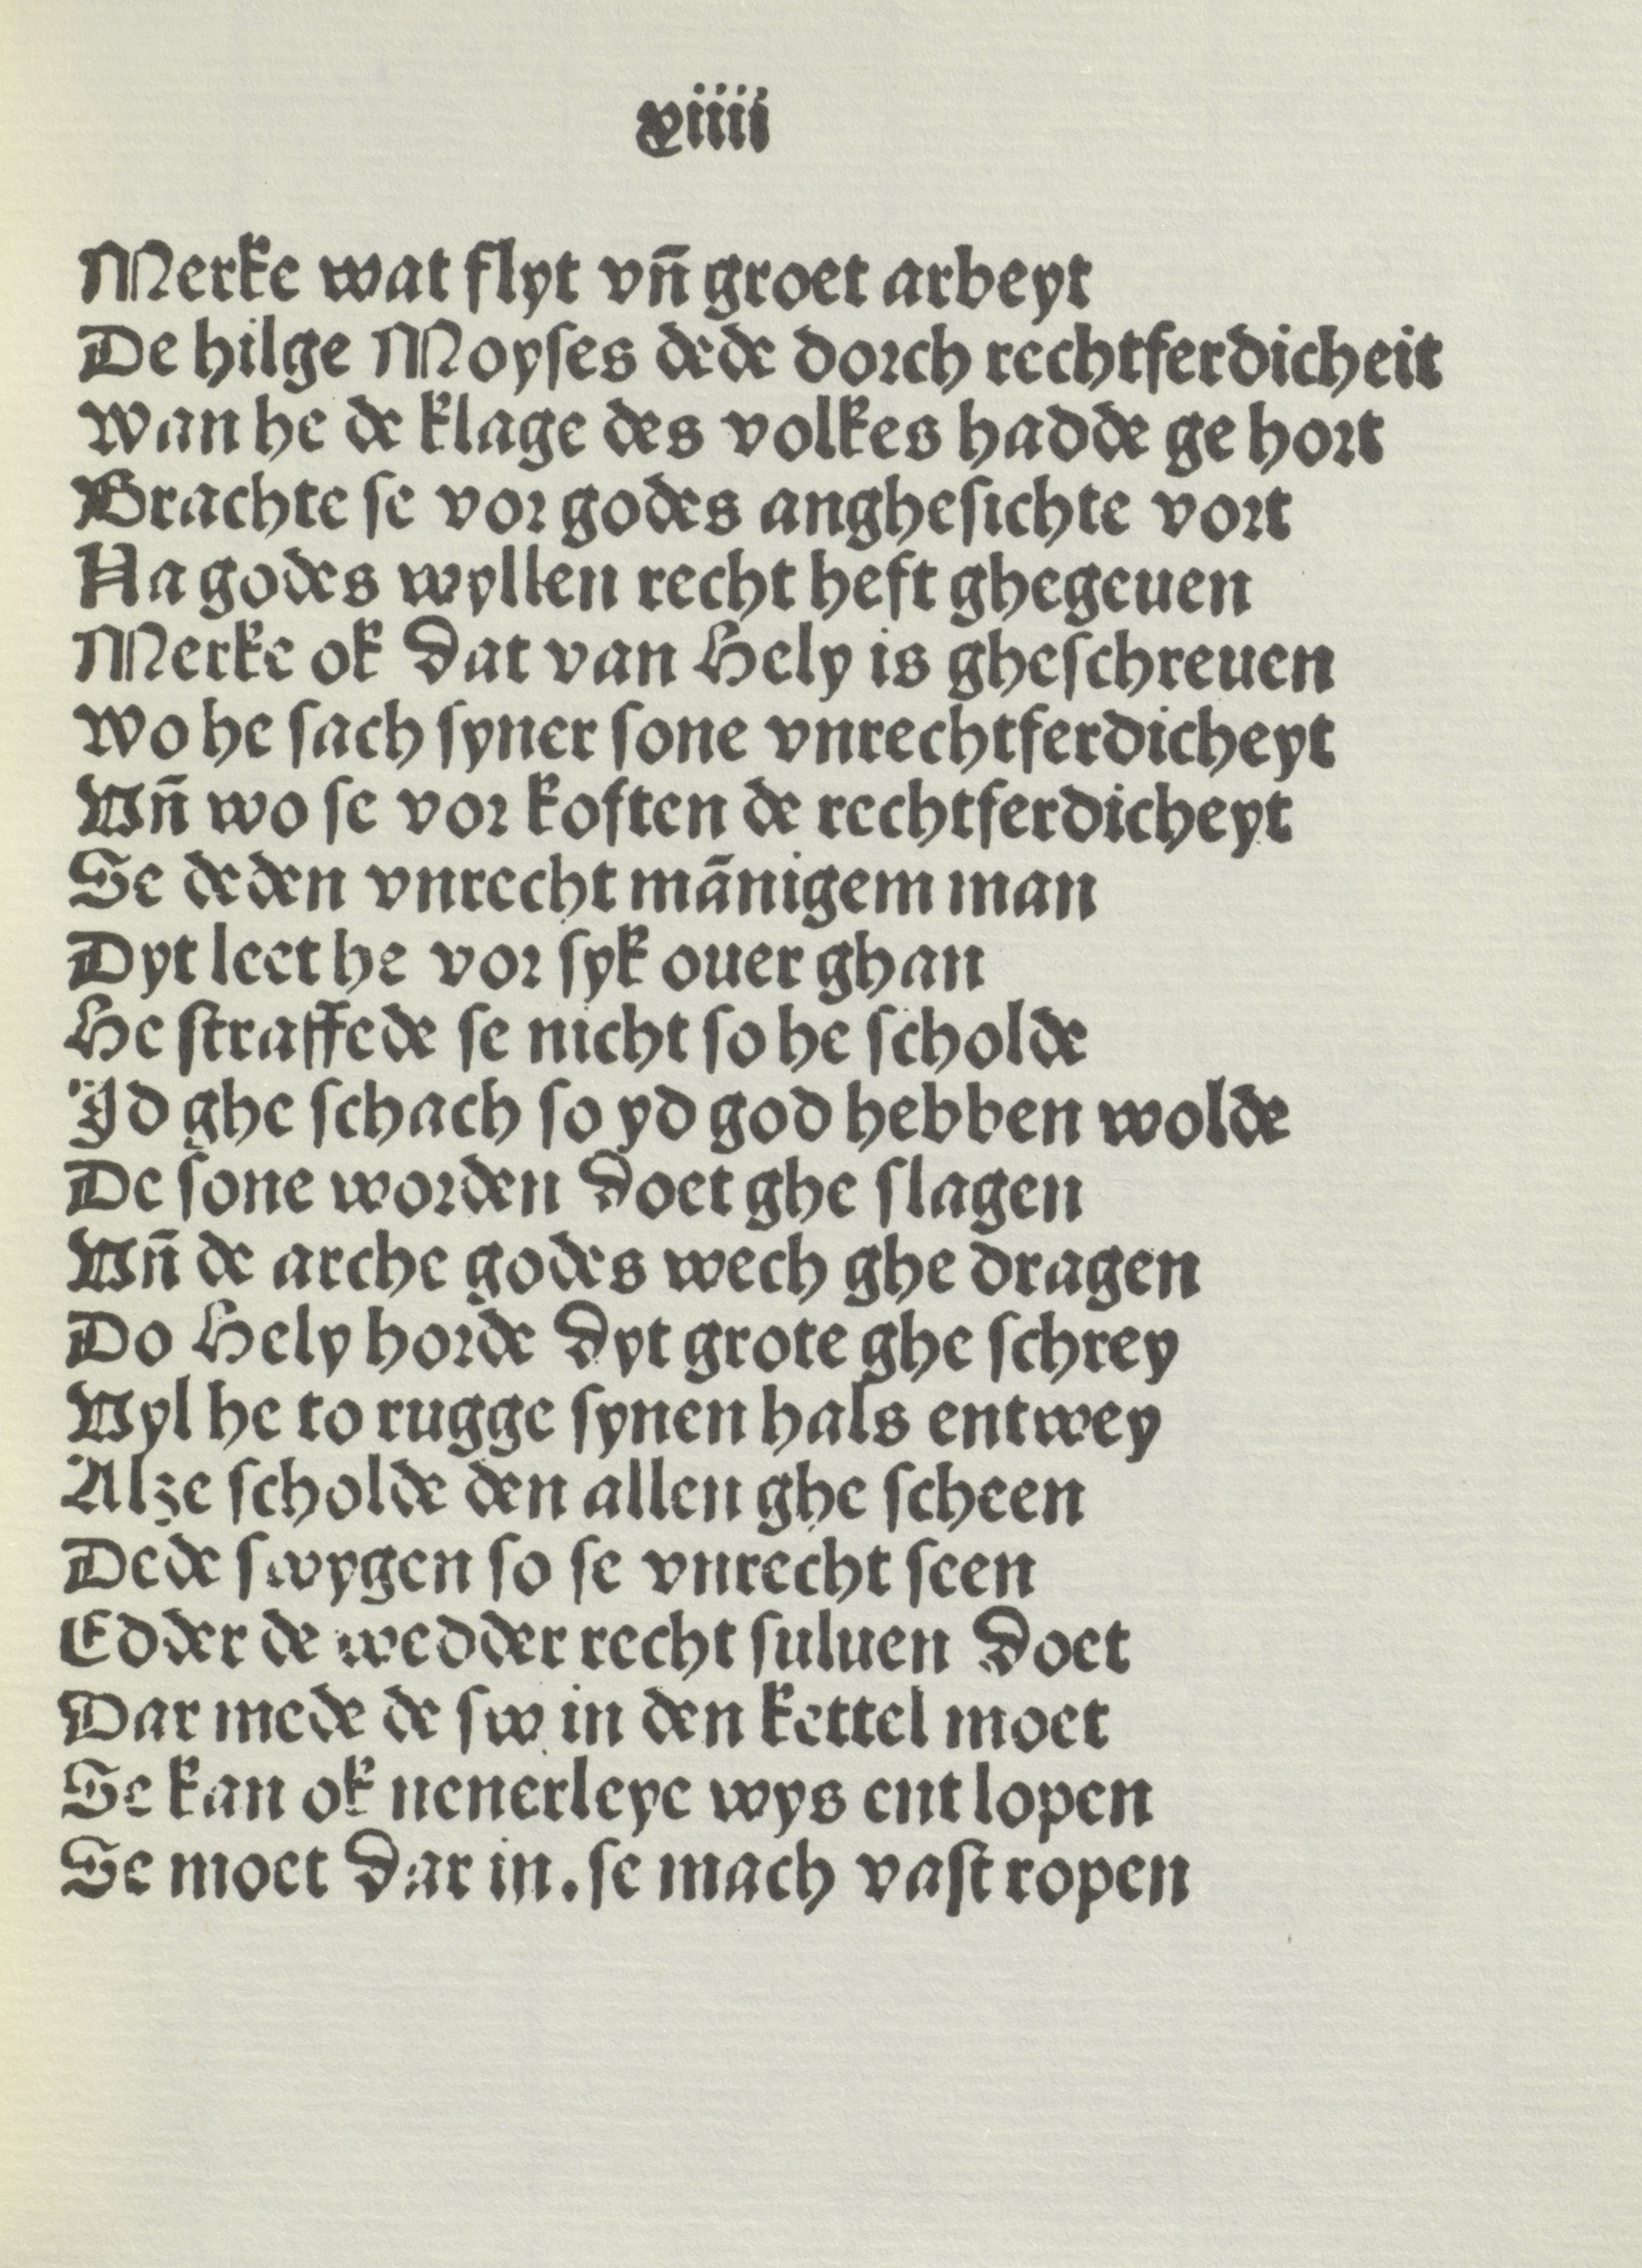 xiiii
Merke wat flyt vñ groet arbeyt
De hilge Moyſes dede dorch rechtferdicheit
Wan he de klage des volkes hadde ge hort
Brachte ſe vor godes angheſichte vort
Na godes wyllen recht heft ghegeuen
Merke ok dat van Hely is gheſchreuen
Wo he ſach ſyner ſone vnrechtferdicheyt
Vñ wo ſe vor koften de rechtferdicheyt
Se deden vnrecht mānigem man
Dyt leet he vor ſyk ouer ghan
He ſtraffede ſe nicht ſo he ſcholde
Jd ghe ſchach ſo yd god hebben wolde
De ſone worden doet ghe ſlagen
Vñ de arche godes wech ghe dragen
Do Hely horde dyt grote ghe ſchrey
Vyl he to rugge ſynen hals entwey
Alze ſcholde den allen ghe ſcheen
Dede ſwygen ſo ſe vnrecht ſeen
Edder de wedder recht ſuluen doet
Dar mede de ſw in den kettel moet
Se kan ok nenerleye wys ent lopen
Se moet dar in. ſe mach vaſt ropen